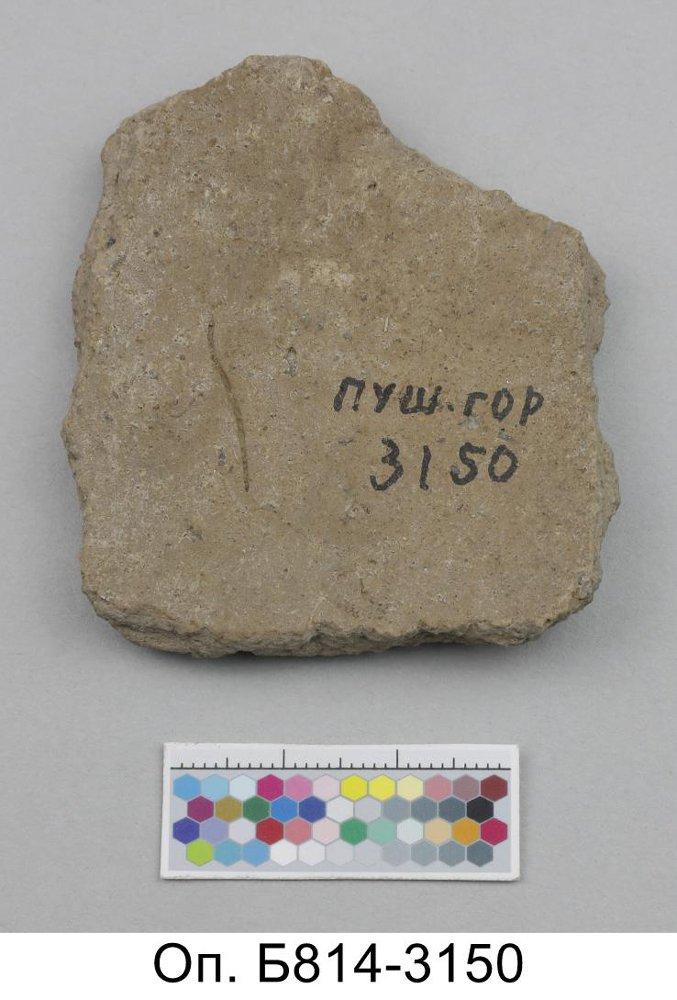 пуш.гор
3150
Оп. Б814-3150